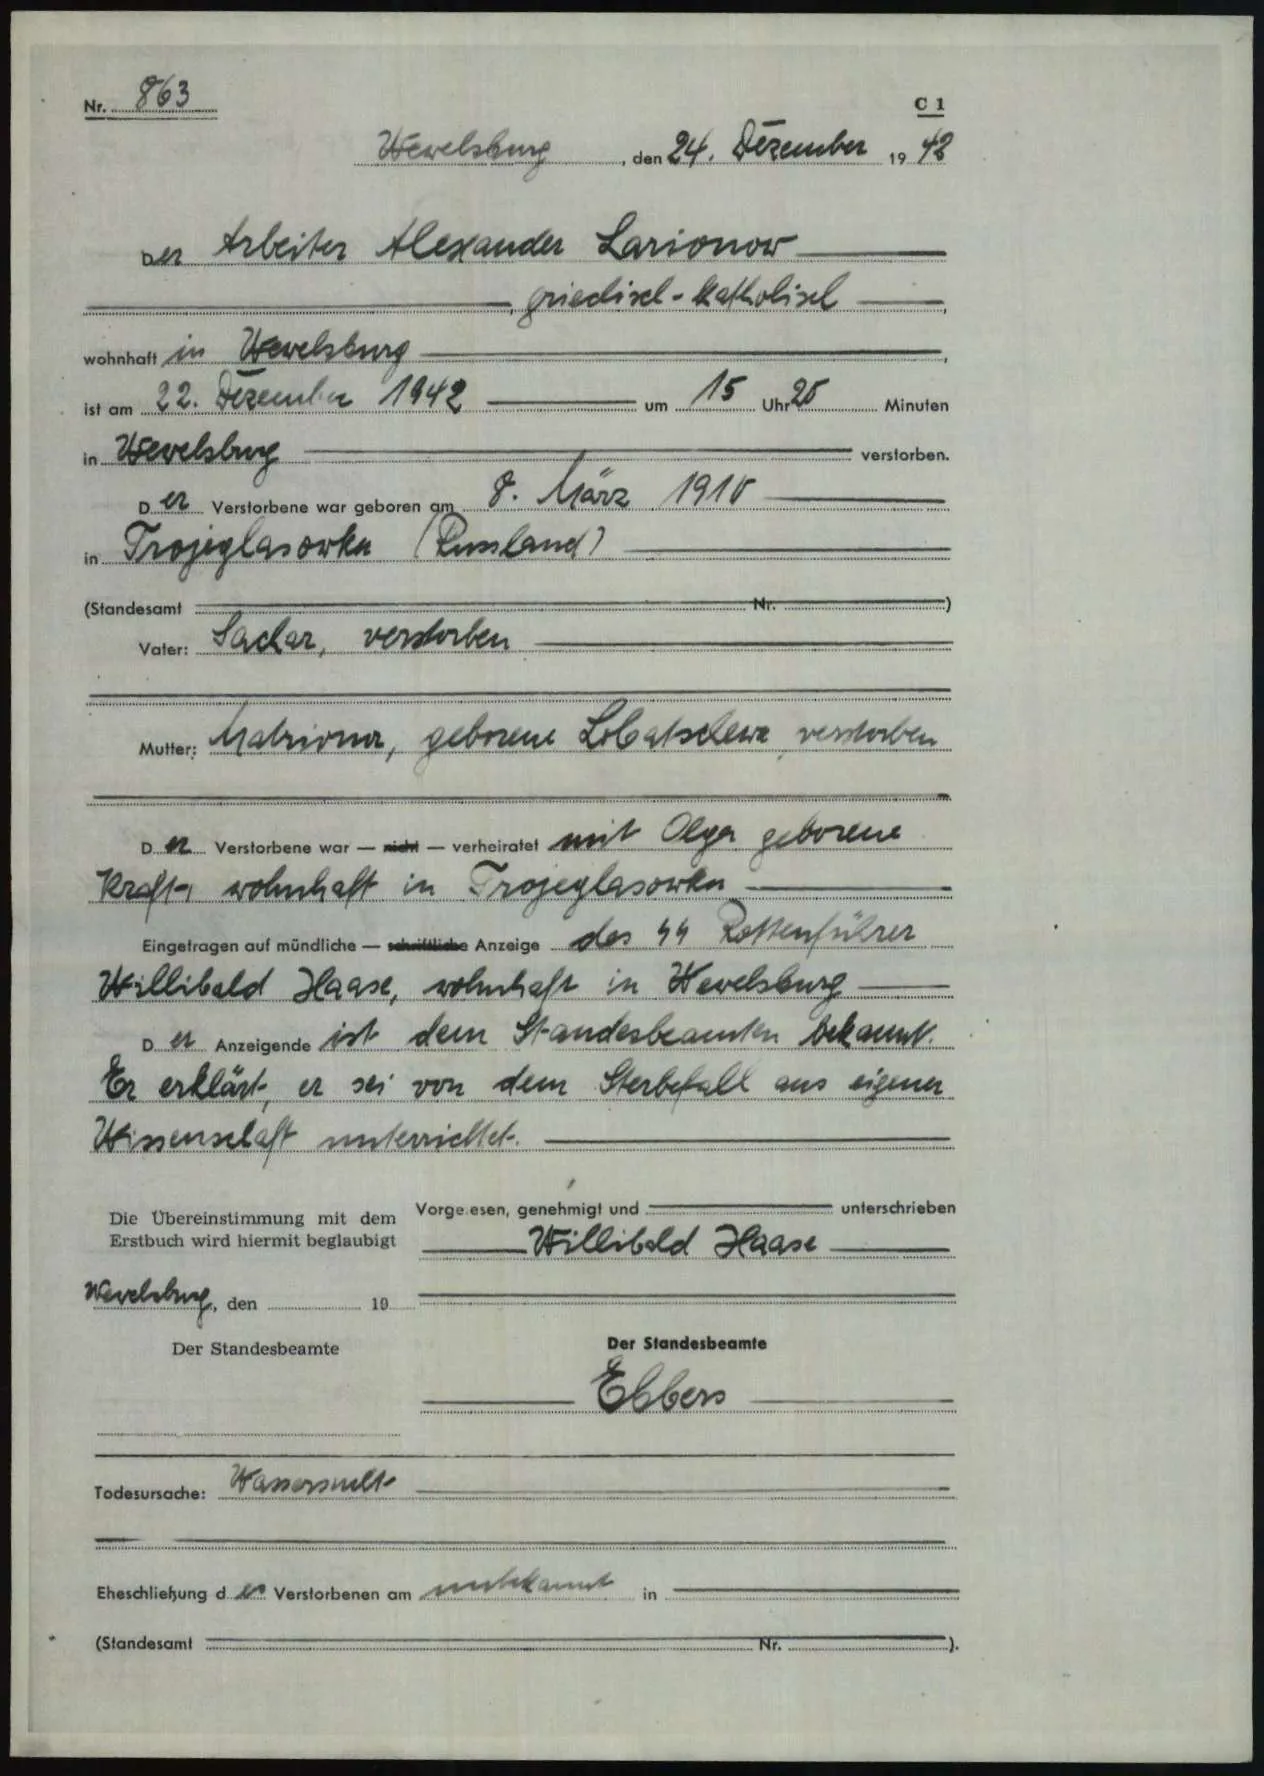 Nr. 863
C 1
Wewelsburg, den 24. Dezember 1942
Der Arbeiter Alexander Larionow
, griechisch-katholisch,
wohnhaft in Wewelsburg,
ist am 22. Dezember 1942 um 15 Uhr 20 Minuten
in Wewelsburg verstorben.
Der Verstorbene war geboren am 8. März 1910
in Trojeglasowka (Russland)
(Standesamt Nr. )
Vater: Sachar, verstorben
Mutter: Matriona, geborene Lobatschewa, verstorben
Der Verstorbene war — nicht — verheiratet mit Olga geborene
Kraft, wohnhaft in Trojeglasowka
Eingetragen auf mündliche — schriftliche Anzeige des SS Rottenführer
Willibald Haase, wohnhaft in Wewelsburg
Der Anzeigende ist dem Standesbeamten bekannt.
Er erklärt, er sei von dem Sterbefall aus eigener
Wissenschaft unterrichtet.
Vorgelesen, genehmigt und unterschrieben
Willibald Haase
Die Übereinstimmung mit dem
Erstbuch wird hiermit beglaubigt
Wewelsburg, den 19
Der Standesbeamte
Der Standesbeamte
Ebbers
Todesursache: Wassersucht
Eheschließung des Verstorbenen am unbekannt in
(Standesamt Nr. ).